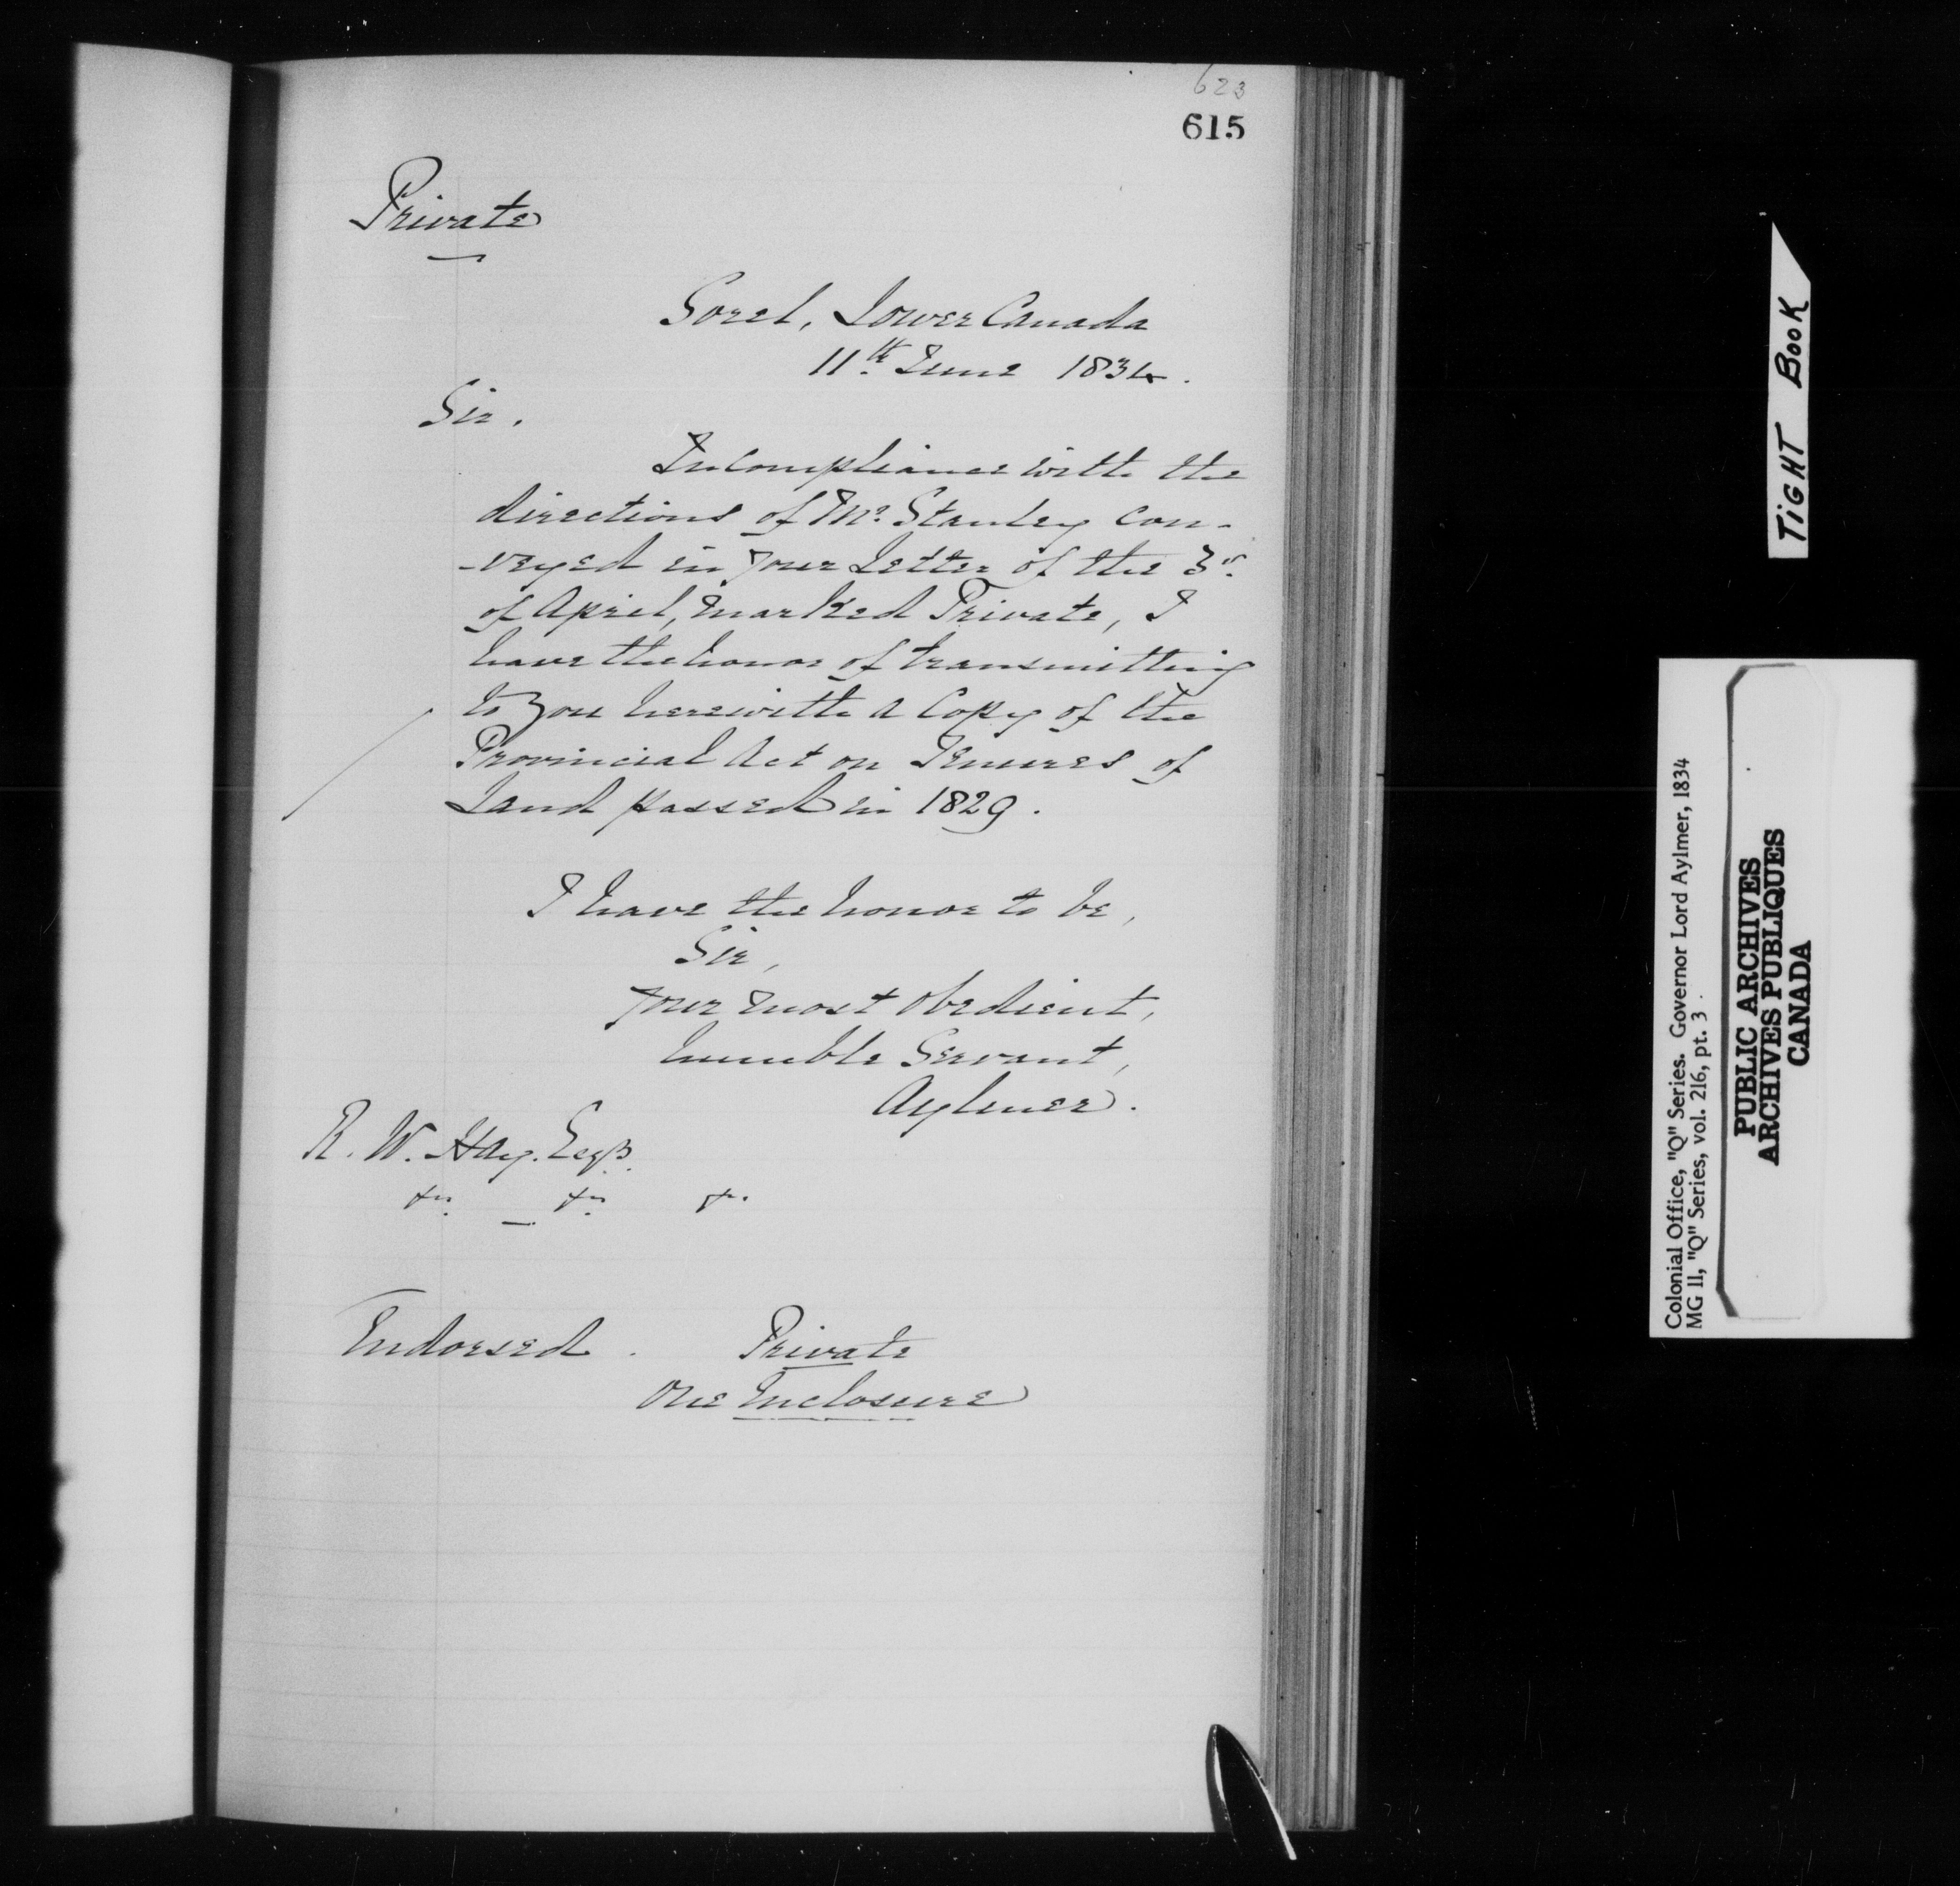 623
615
Private
Sorel, Lower Canada
11th June 1834.
Sir,
In compliance with the
directions of Mr. Stanley con-
-veyed in your Letter of the 3rd.
of April, marked Private, I
have the honor of transmitting
to you herewith a Copy of the
Provincial Act on Tenures of
Land passed in 1829.
I have the honor to be,
Sir,
your most obedient,
humble Servant,
Aylmer.
R. W. Hay. Esqr.
&c. _ &c. &c.
Endorsed. Private
One Enclosure
TIGHT BOOK
Colonial Office, "Q" Series. Governor Lord Aylmer, 1834
MG 11, "Q" Series, vol. 216, pt. 3.
PUBLIC ARCHIVES
ARCHIVES PUBLIQUES
CANADA